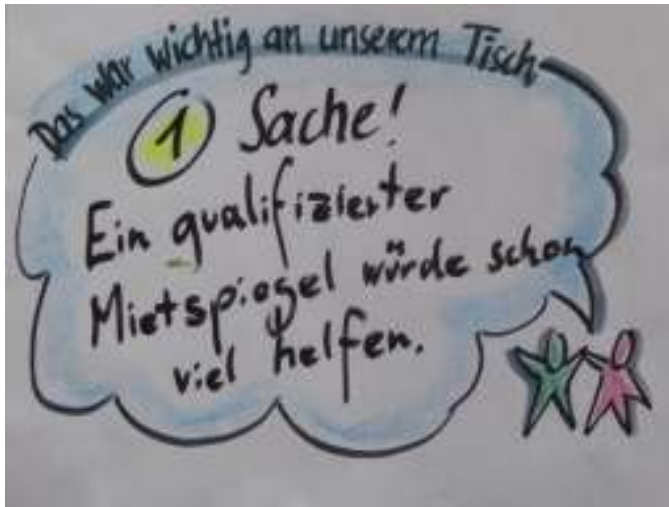 Das war wichtig an unserem Tisch
1 Sache!
Ein qualifizierter
Mietspiegel würde schon
viel helfen.